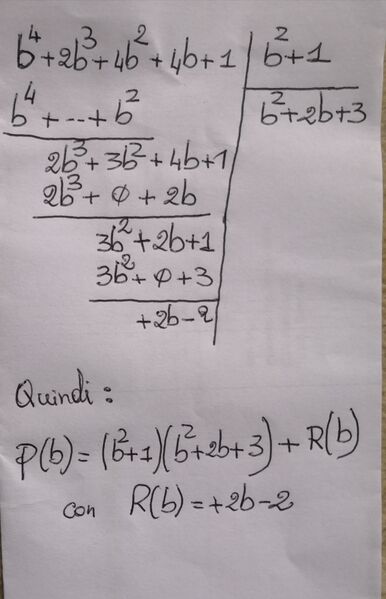 b⁴+2b³+4b²+4b+1 | b²+1
b⁴+--+b² b²+2b+3
2b³+3b²+4b+1
2b³+0+2b
3b²+2b+1
3b²+0+3
+2b-2
Quindi:
P(b)=(b²+1)(b²+2b+3)+R(b)
con R(b)=+2b-2